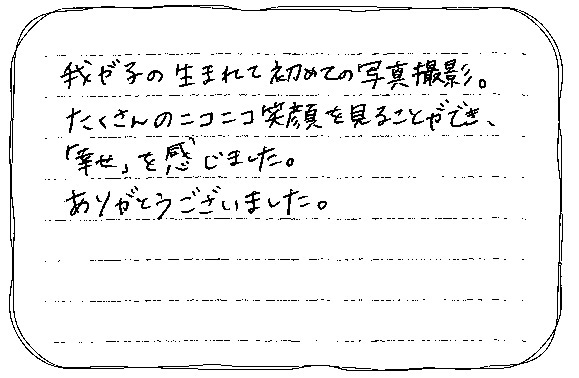 我が子の生まれて初めての写真撮影。
たくさんのニコニコ笑顔を見ることができ、
「幸せ」を感じました。
ありがとうございました。